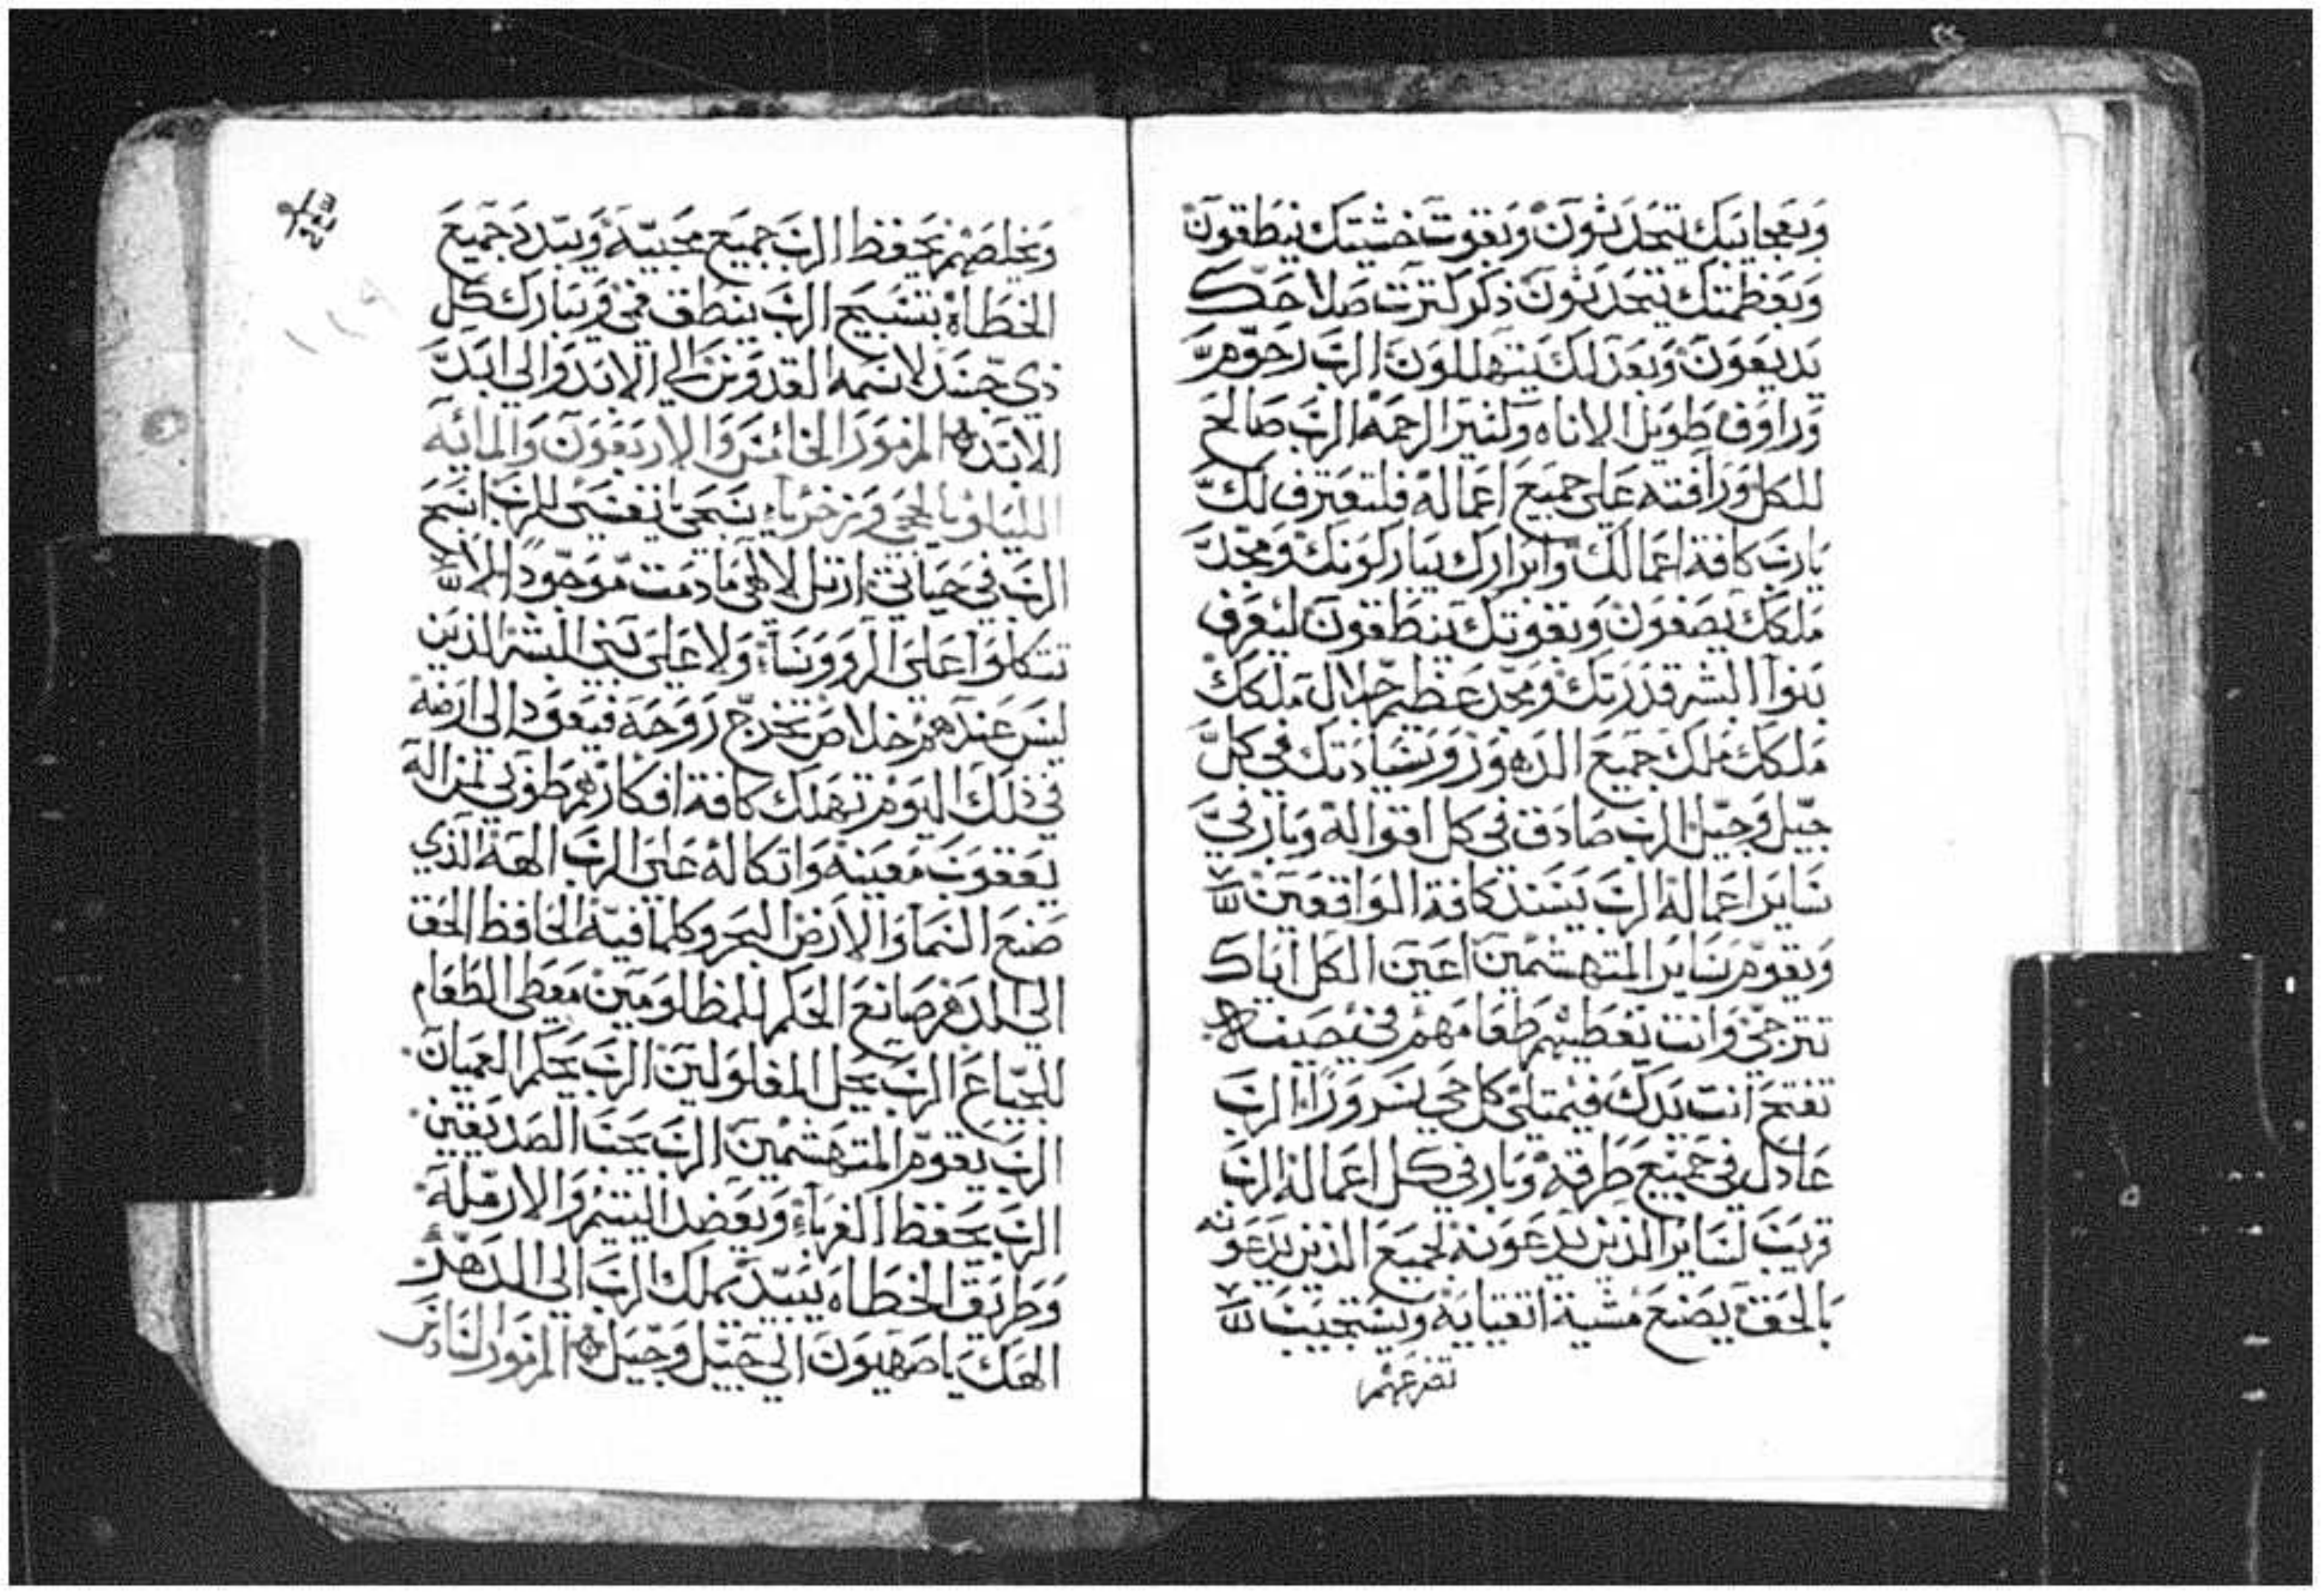 وبعجايبك يتحدثون وبقوت خشيتك ينطقون
وبعظمتك يتحدثون ذكر كترت صلاحك
يديعون وبعدلك يتهللون الرب رحوم
وراوف طويل الاناه وكتير الرحمه الرب صالح
للكل ورافته على جميع اعماله فلتعترف لك
يارب كافة اعمالك وابرارك يباركونك ومجد
ملكك يصفون وبقوتك ينطقون ليعرف
بنوا البشر قدرتك ومجد عظيم جلال ملكك
ملكك ملك جميع الدهور وسيادتك في كل
جيل وجيل الرب صادق في كل اقواله وبار في
ساير اعماله الرب يسند كافة الواقعين
ويقوم ساير المتهشمين اعين الكل اياك
تترجى وانت تعطيهم طعامهم في حينه
تفتح انت يدك فيمتلى كل حي سرورا الرب
عادل في جميع طرقه وبار في كل اعماله الرب
قريب لساير الذين يدعونه لجميع الذين يدعونه
بالحق يصنع مشية اتقيايه ويستجيب
تضرعهم
ويخلصهم يحفظ الرب جميع محبيه ويبدد جميع
الخطاه بتسبيح الرب ينطق فمي ويبارك كل
ذي جسد لاسمه القدوس الى الابد والى ابد
الابد المزمور الخامس والاربعون والمائه
الليلويا لحجي وزخريا سبحي يا نفسي للرب اسبح
الرب في حياتي ارتل لالاهي ما دمت موجودا لا
تتكلوا على الروسا ولا على بني البشر الذين
ليس عندهم خلاص تخرج روحه فيعود الى ارضه
في ذلك اليوم تهلك كافة افكارهم طوبى لمن اله
يعقوب معينه واتكاله على الرب الهه الذي
صنع السما والارض البحر وكلما فيه الحافظ الحق
الى الدهر صانع الحكم للمظلومين معطي الطعام
للجياع الرب يحل المغلولين الرب يحكم العميان
الرب يقوم المتهشمين الرب يحب الصديقين
الرب يحفظ الغرباء ويعضد اليتيم والارمله
وطريق الخطاه يبيد يملك الرب الى الدهر
الهك يا صهيون الى جيل وجيل المزمور السادس